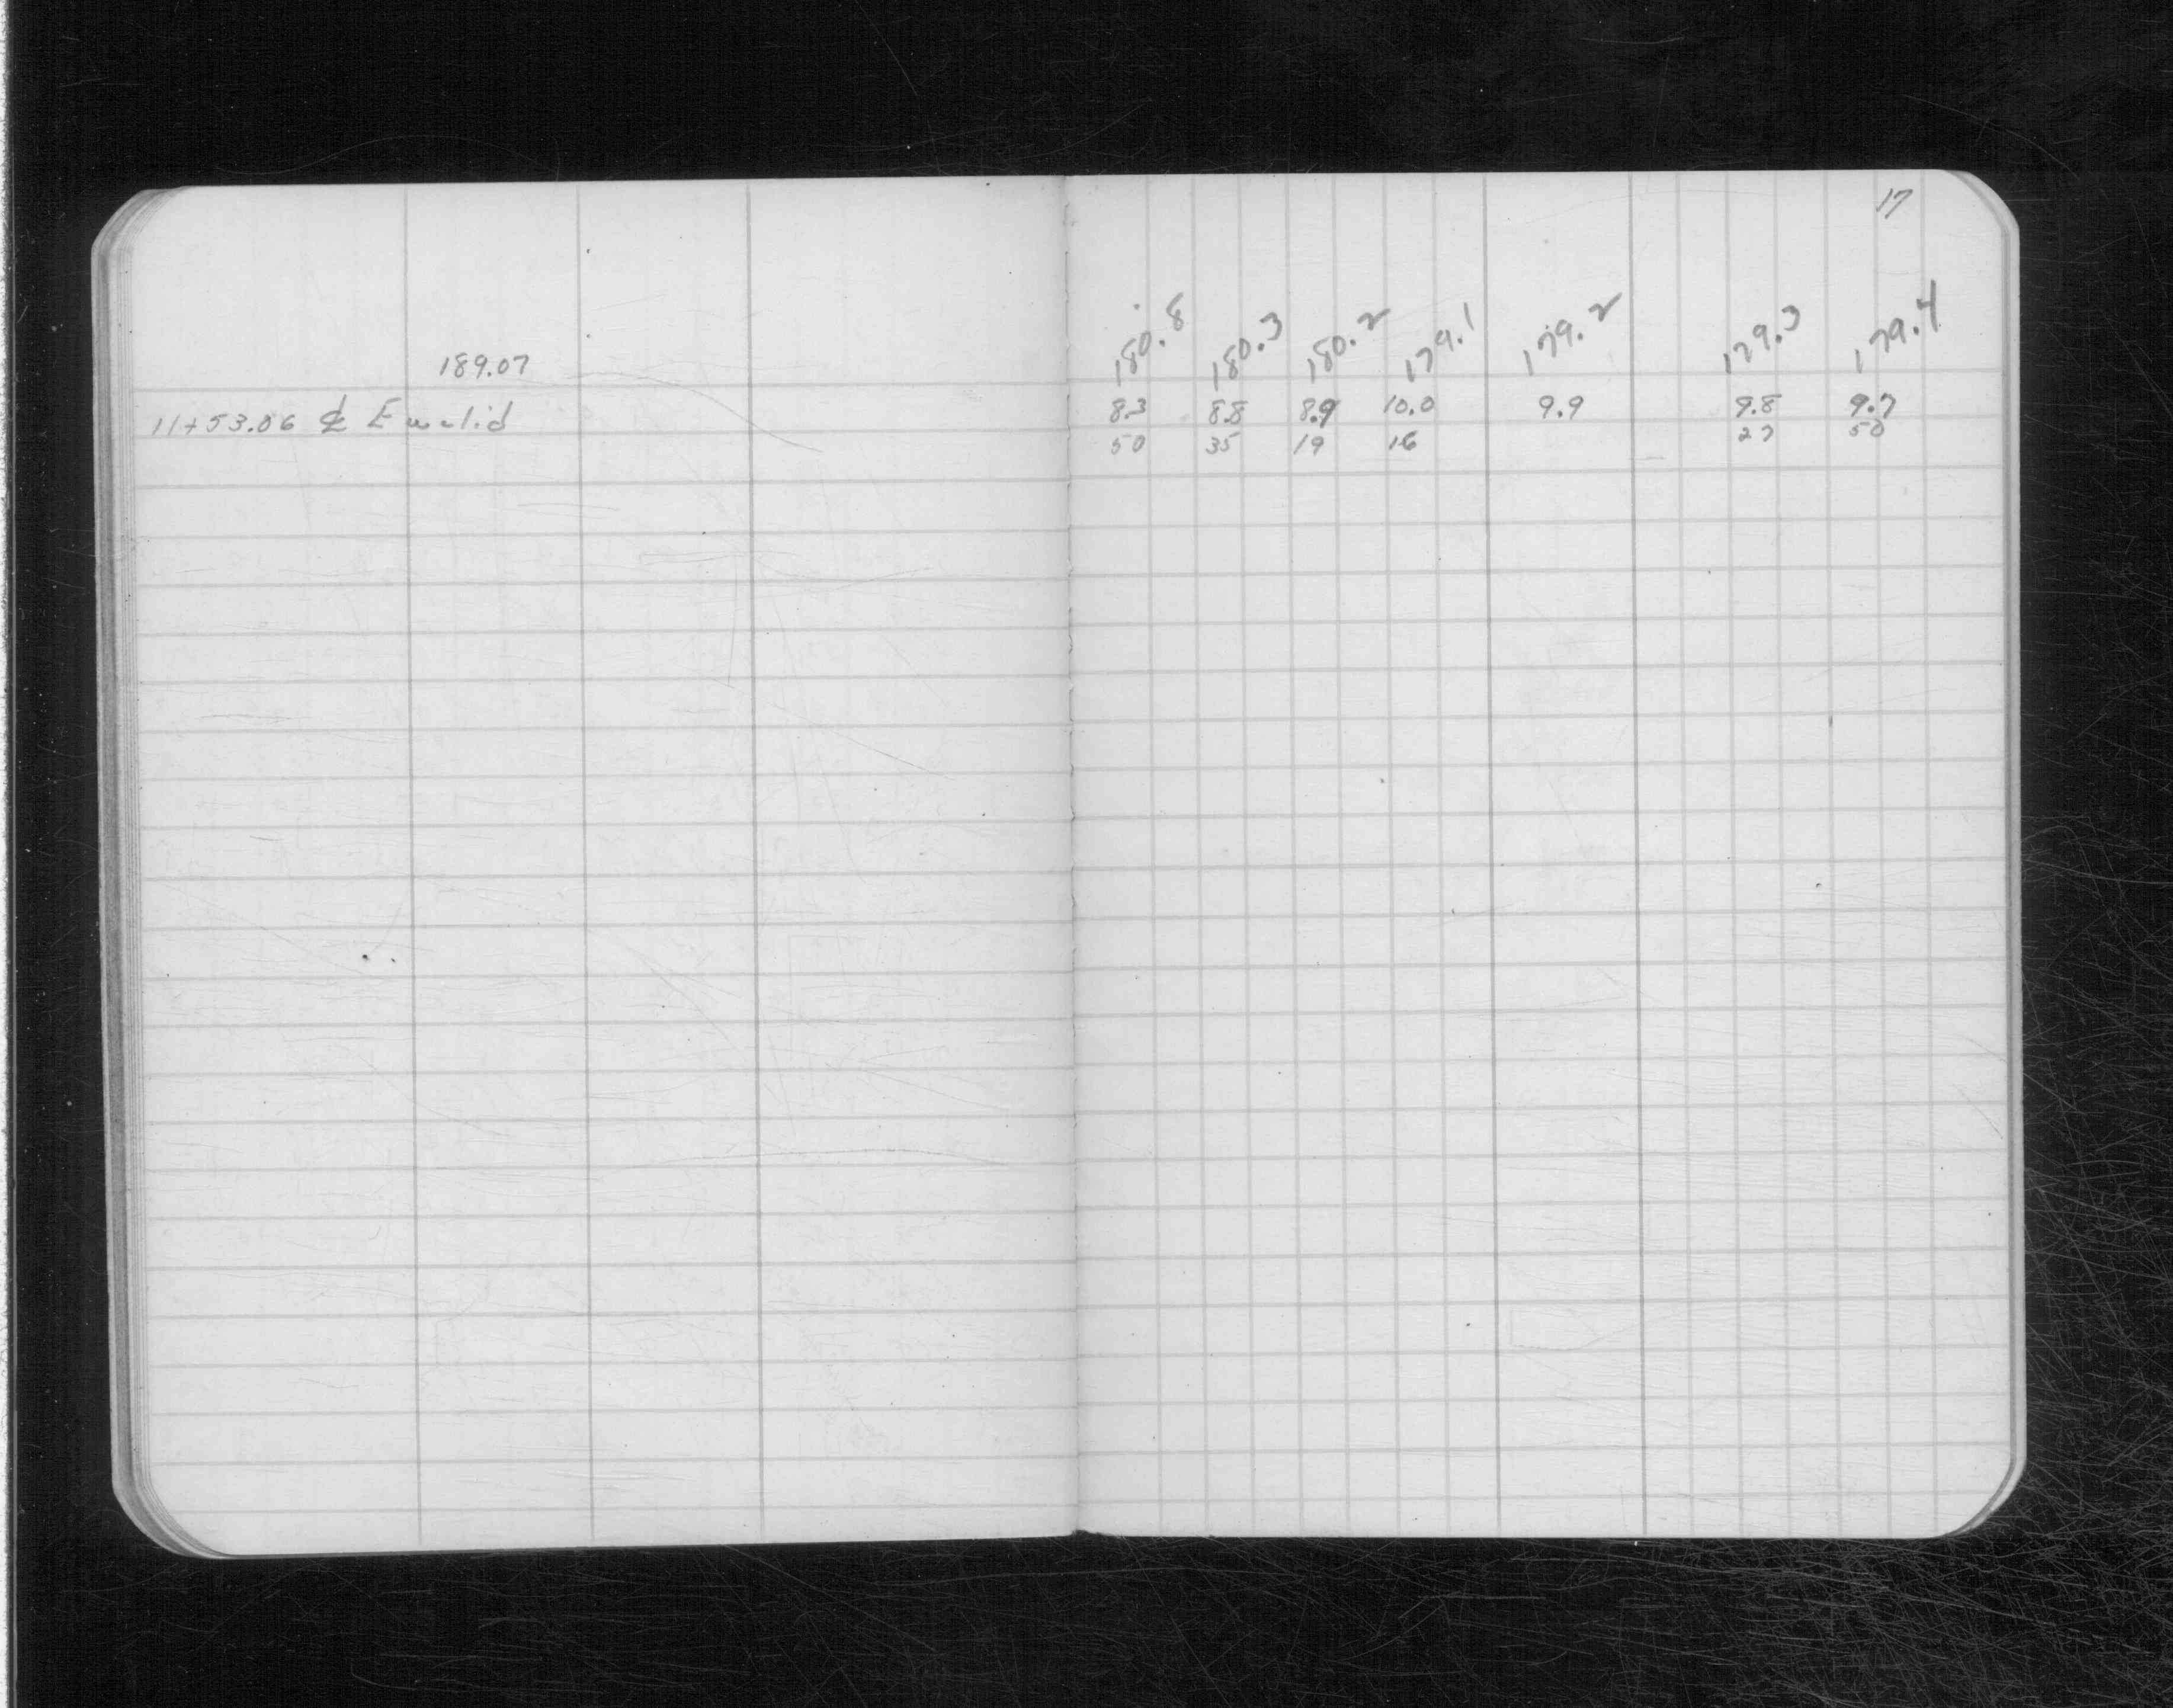 17
189.07
180.8 180.3 180.2 179.1 179.2 179.3 179.4
11+53.06 ℄ Euclid
8.3 8.8 8.9 10.0 9.9 9.8 9.7
50 35 19 16 27 50